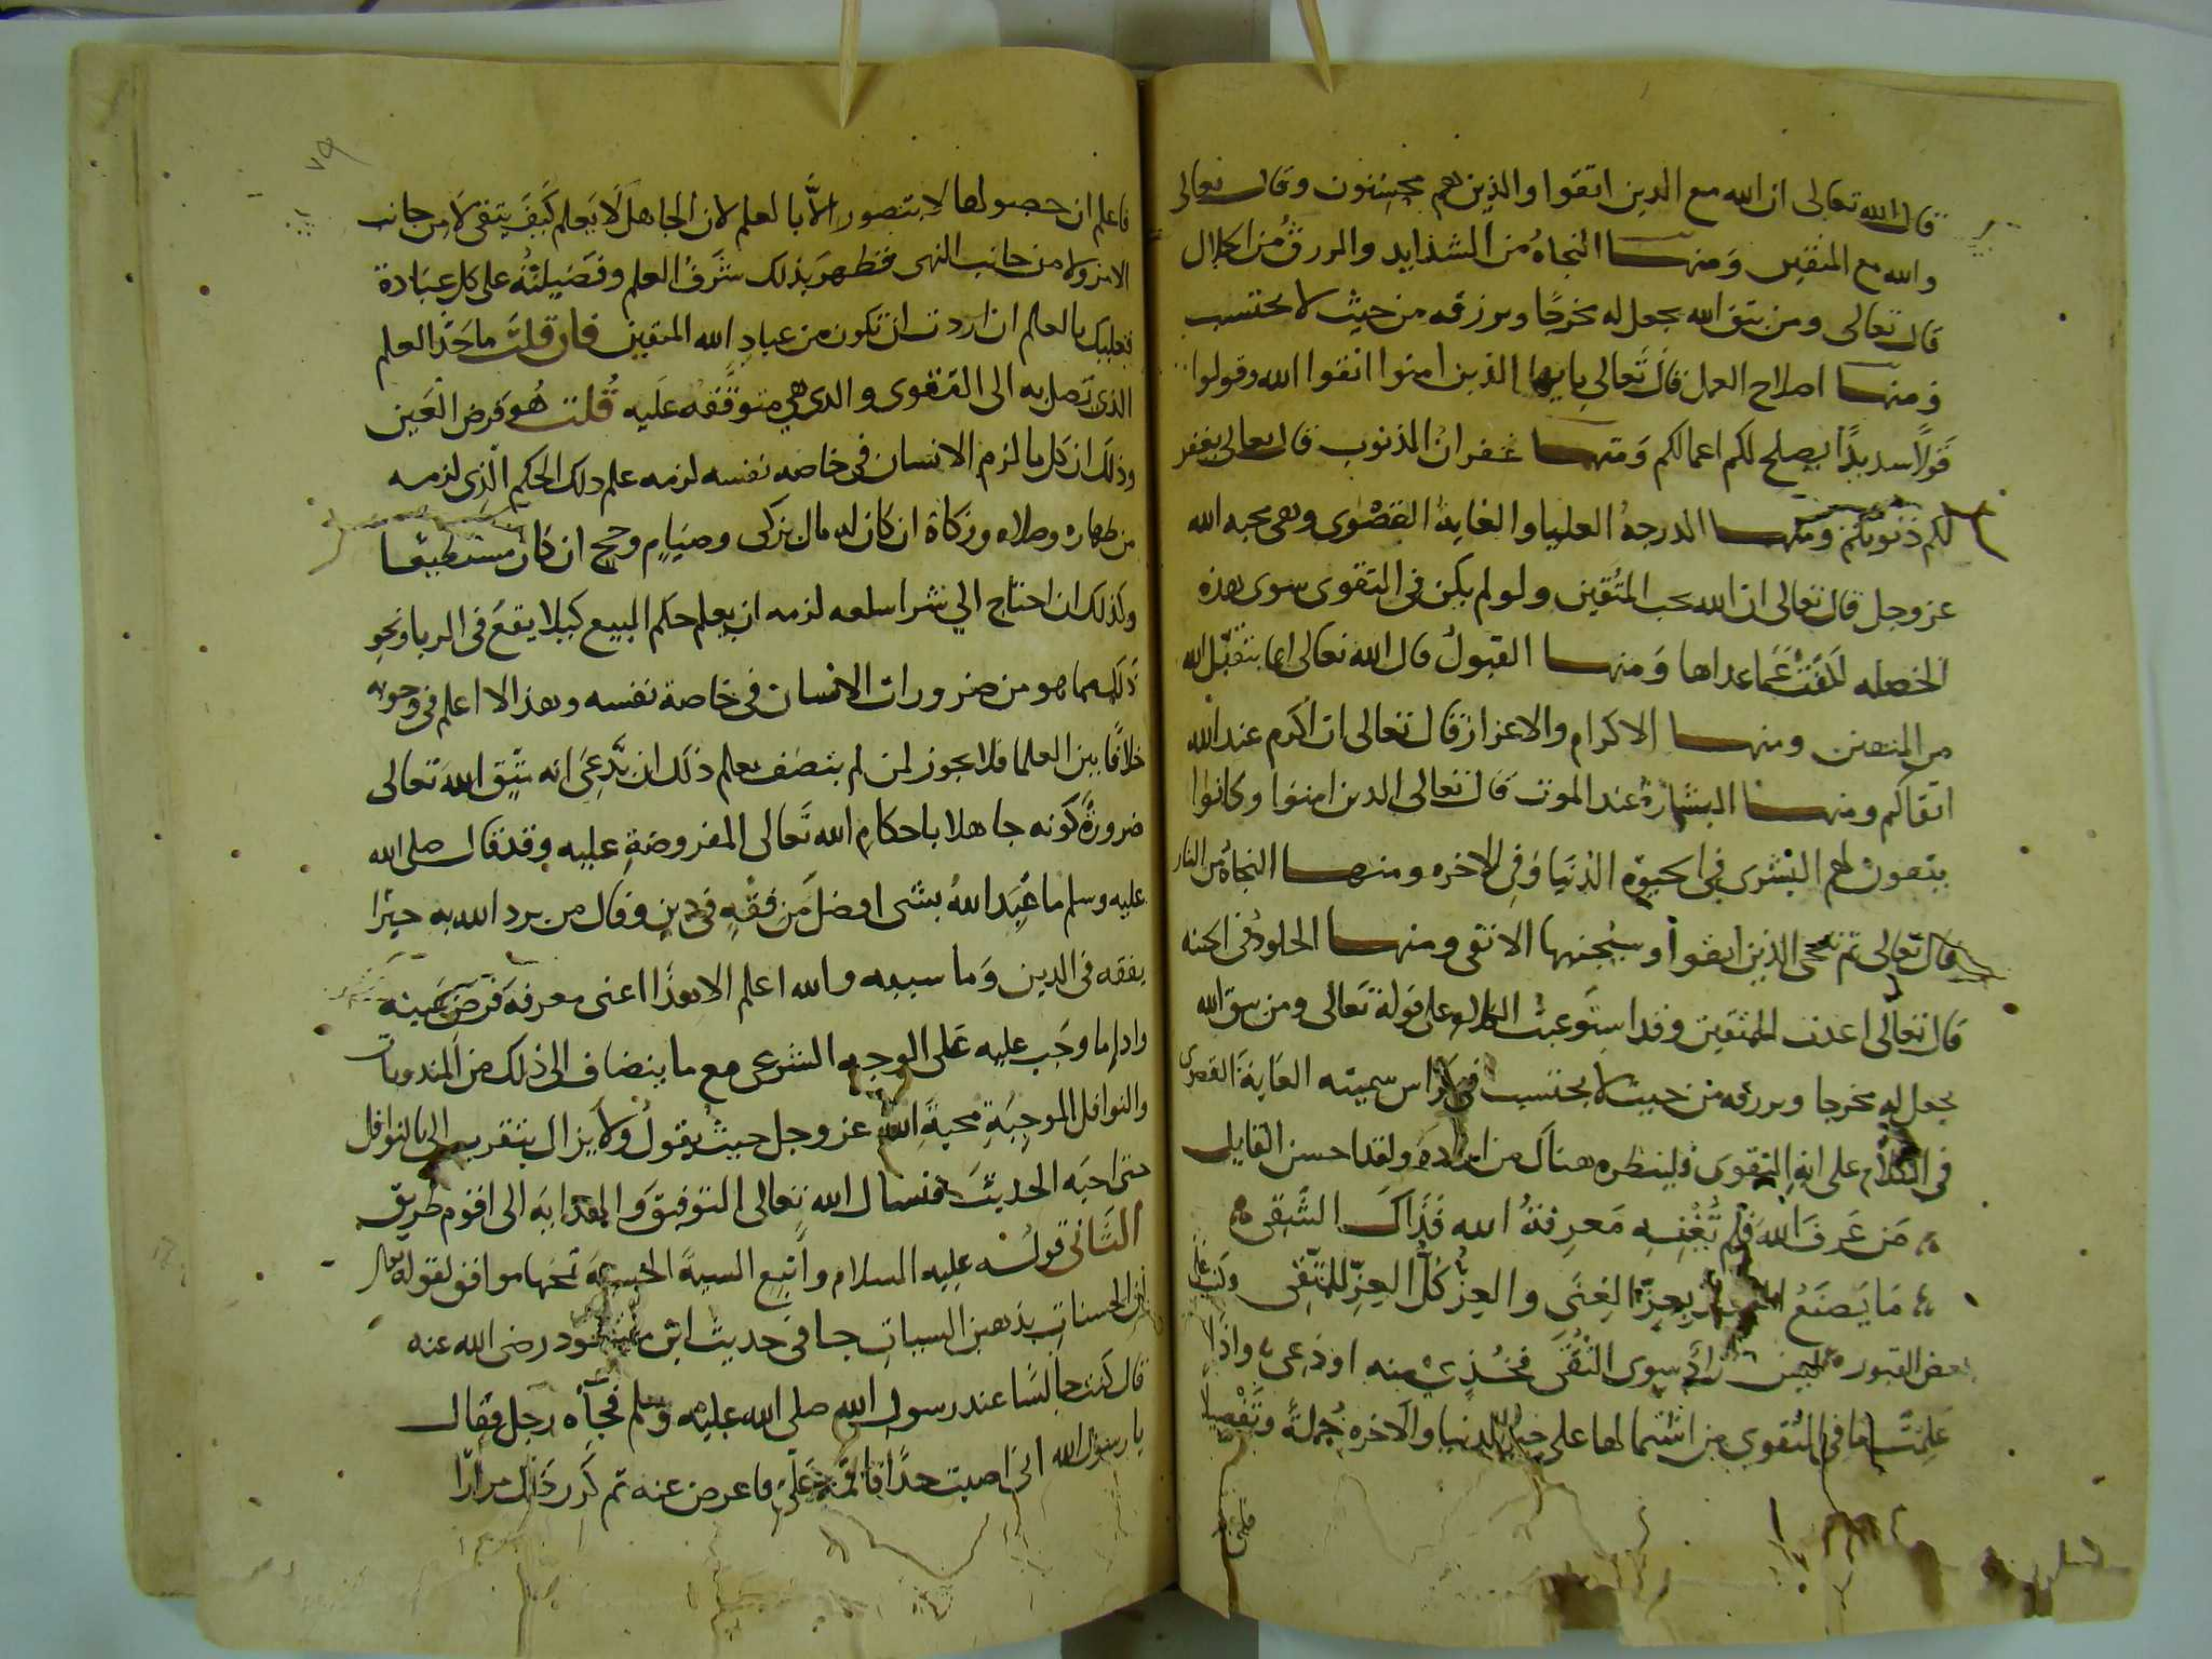 قال الله تعالى ان الله مع الدين اتقوا والذين هم محسنون وقال تعالى
والله مع المتقين ومنها النجاة من الشدايد والرزق من الحلال
قال تعالى ومن يتق الله يجعل له مخرجا ويرزقه من حيث لا يحتسب
ومنها اصلاح العمل قال تعالى يايها الذين امنوا اتقوا الله وقولوا
قولا سديدا يصلح لكم اعمالكم ومنها غفران الذنوب قال تعالى يغفر
لكم ذنوبكم ومنها الدرجة العليا والغاية القصوى وهى محبه الله
عز وجل قال تعالى ان الله يحب المتقين ولو لم يكن فى التقوى سوى هذه
الخصله لكفت عما عداها ومنها القبول قال الله تعالى انما يتقبل الله
من المتقين ومنها الاكرام والاعزاز قال تعالى ان اكرم عند الله
اتقاكم ومنها البشارة عند الموت قال تعالى الدين امنوا وكانوا
يتقون لهم البشرى فى الحيوة الدنيا وفى الاخره ومنها النجاة من النار
قال تعالى ثم ننجى الذين اتقوا وسيجنبها الاتقى ومنها الخلود فى الجنه
قال تعالى اعدت للمتقين وقد استوعبت الكلام على قوله تعالى ومن يتق الله
يجعل له مخرجا ويرزقه من حيث لا يحتسب فى سميته الغاية القصوى
فى الكلام على اية التقوى فلينظره هناك من اراده ولقد احسن القايل
من عرف الله فلم تغنه معرفة الله فذاك الشقى
ما يصنع العبد بعز الغنى والعز كل العز للمتقى وكتب على
بعض القبور ليس زاد سوى التقى فخذى منه او دعى واذا
علمت ما فى التقوى من اشتمالها على خير الدنيا والاخره جملة وتفصيلا
فاعلم
٧٩
فاعلم ان حصولها لا يتصور الا بالعلم لان الجاهل لا يعلم كيف يتقى لا من جانب
الامر ولا من جانب النهى فظهر بذلك شرف العلم وفضيلته على كل عبادة
فعليك بالعلم ان اردت ان تكون من عباد الله المتقين فان قلت ما حد العلم
الذى تصل به الى التقوى والدى هى متوقفه عليه قلت هو فرض العين
وذلك ان كل ما لزم الانسان فى خاصه نفسه لزمه علم دلك الحكم الذى لزمه
من طهاره وصلاه وزكاة ان كان له مال يزكى وصيام وحج ان كان مستطيعا
وكذلك ان احتاج الي شرا سلعه لزمه ان يعلم حكم البيع كيلا يقع فى الربا ونحو
ذلك مما هو من ضرورات الانسان فى خاصة نفسه وهذا لا اعلم فى وجوبه
خلافا بين العلما فلا يجوز لمن لم يتصف بعلم ذلك ان يدعى انه يتق الله تعالى
ضرورة كونه جاهلا باحكام الله تعالى المفروضة عليه وقد قال صلى الله
عليه وسلم ما عبد الله بشى افضل من فقه فى دين وقال من يرد الله به خيرا
يفقه فى الدين وما سببه والله اعلم الا هذا اعنى معرفة فرض عينه
وادا ما وجب عليه على الوجه الشرعى مع ما ينضاف الى ذلك من المندوبات
والنوافل الموجبة محبة الله عز وجل حيث يقول ولا يزال يتقرب الى بالنوافل
حتى احبه الحديث فنسال الله تعالى التوفيق والهداية الى اقوم طريق
الثانى قوله عليه السلام واتبع السية الحسنة تمحها موافق لقوله تعالى
ان الحسنات يذهبن السيات جا فى حديث ابن مسعود رضى الله عنه
قال كنت جالسا عند رسول الله صلى الله عليه وسلم فجاه رجل فقال
يا رسول الله انى اصبت حدا فاقمه على فاعرض عنه ثم كرر ذلك مرارا